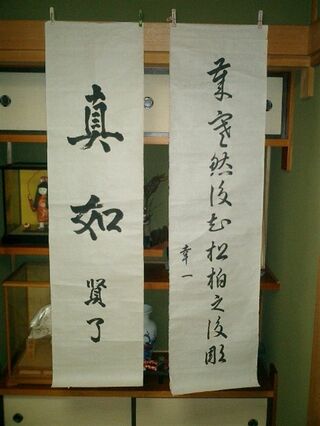 歳寒然後知松柏之後彫
幸一
真如
賢了